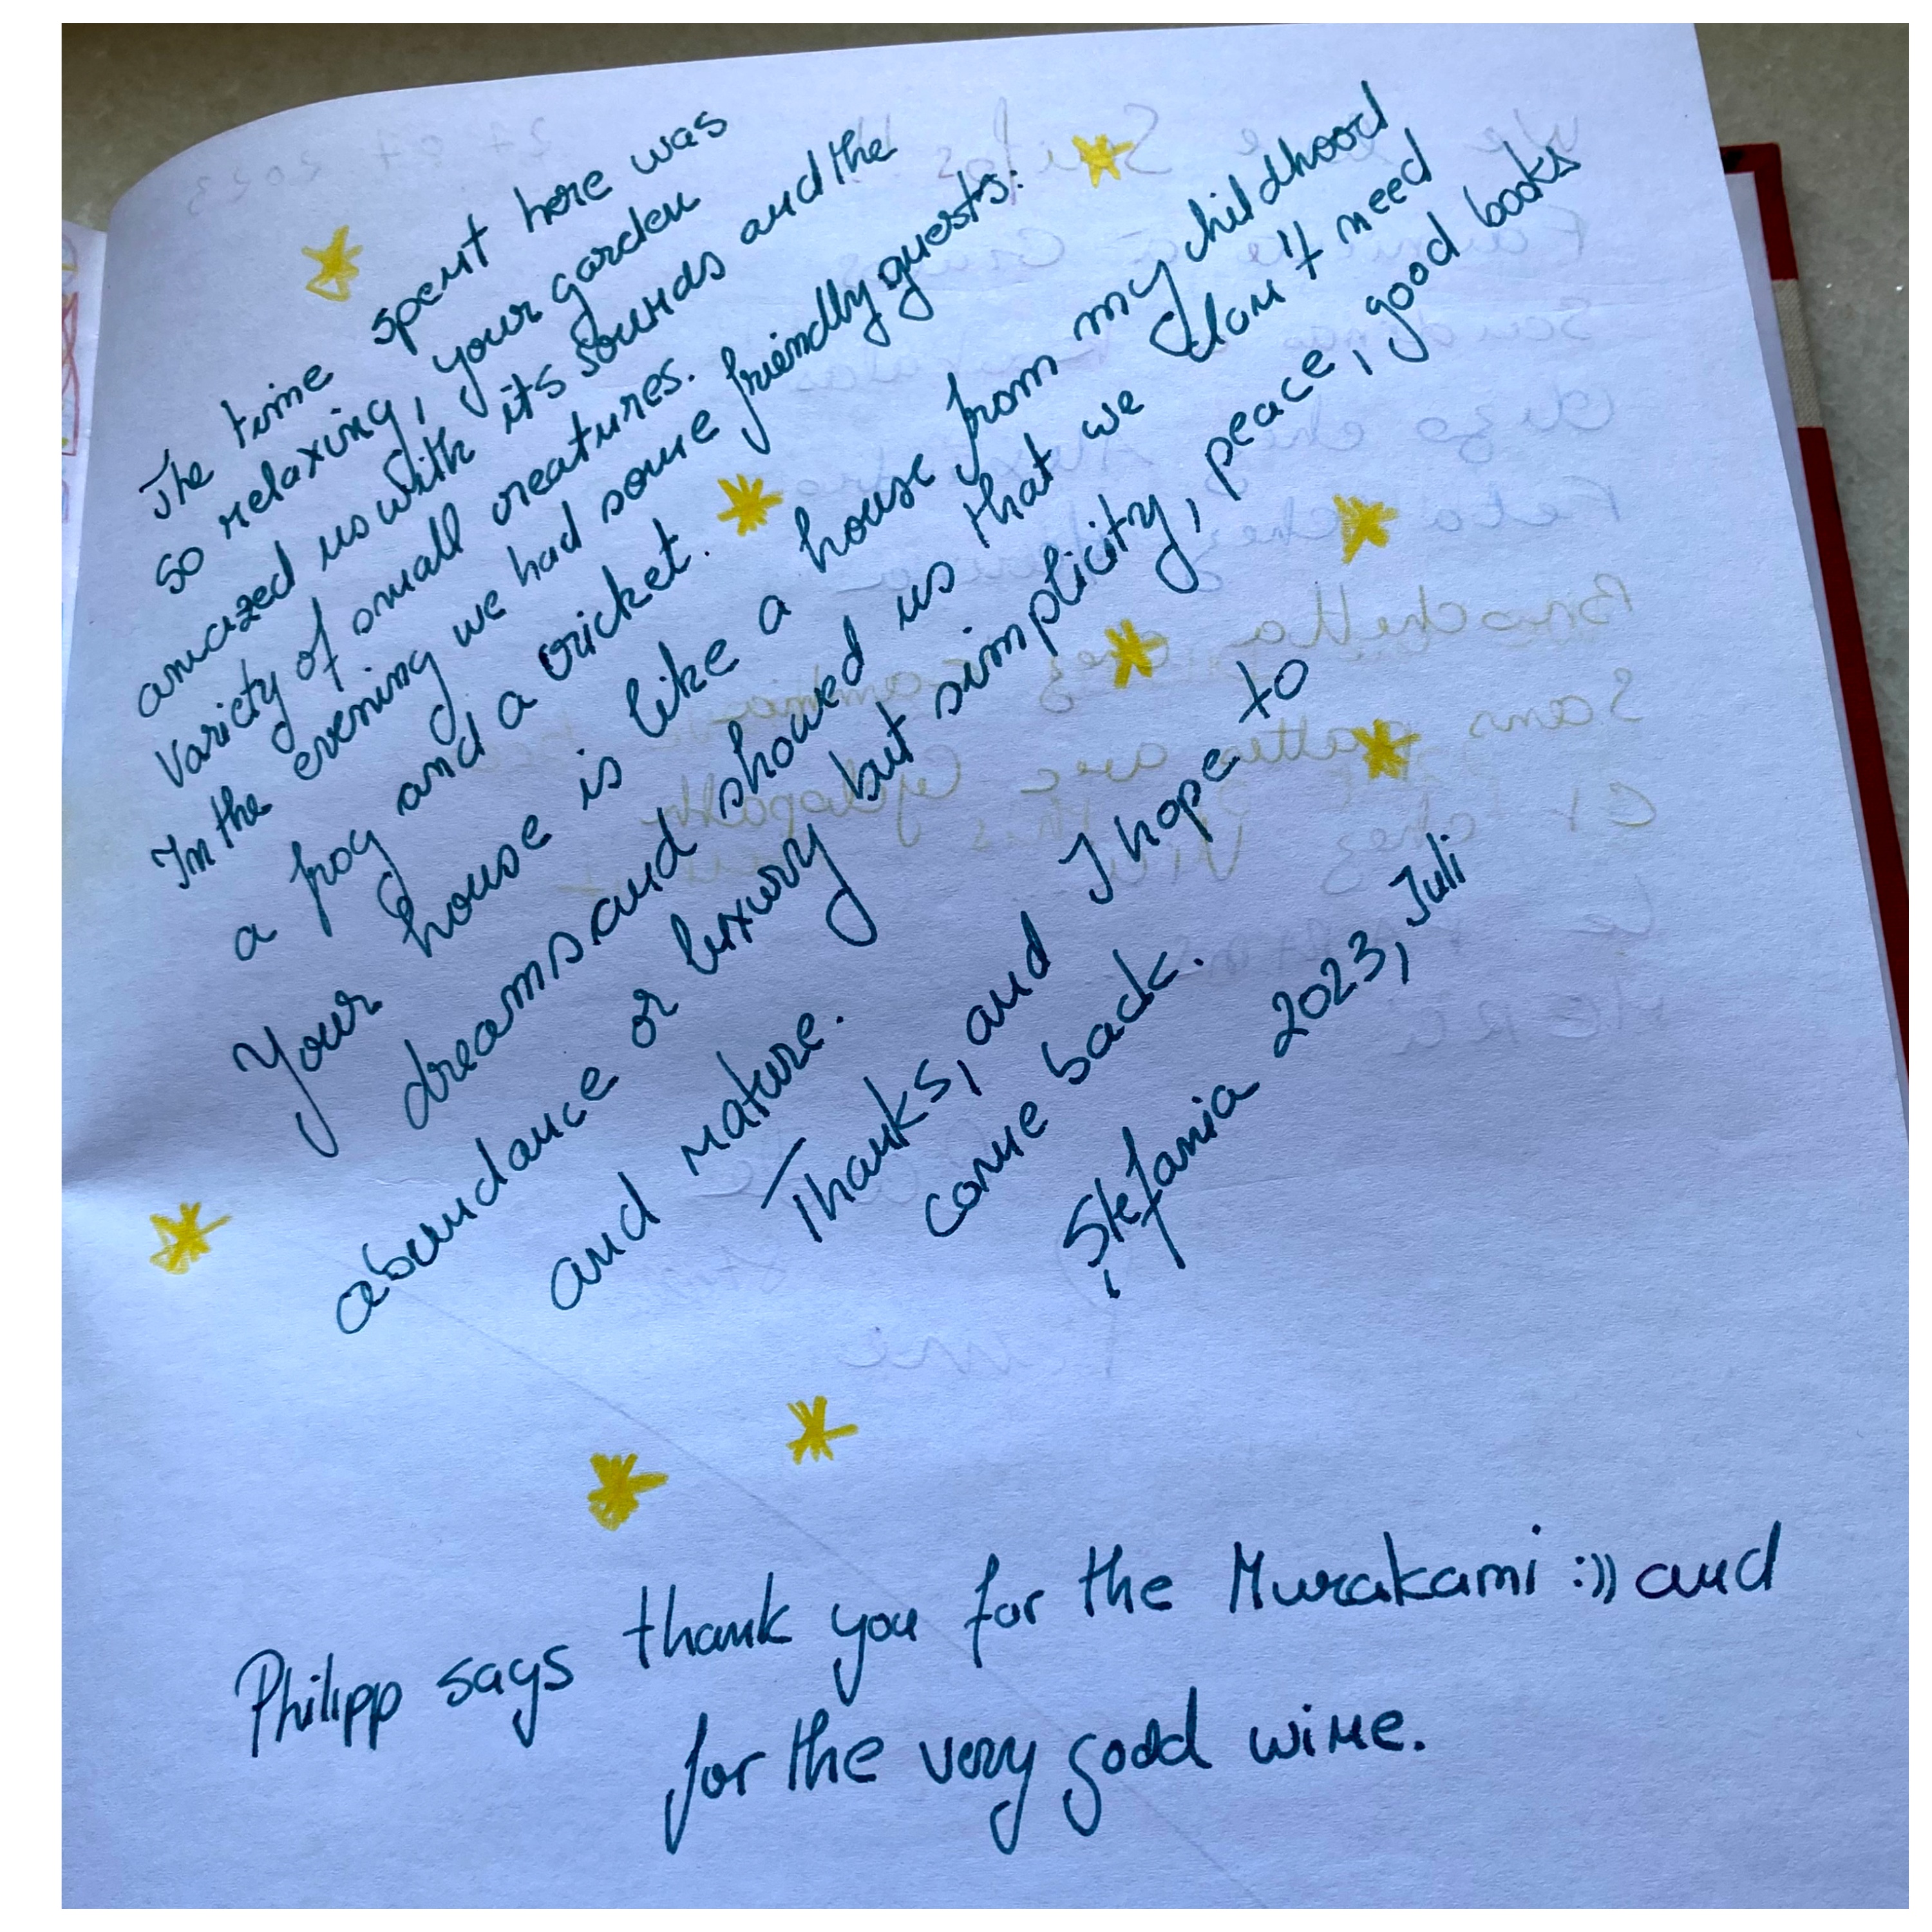 The time spent here was
so relaxing, your garden
amazed us with its sounds and the
variety of small creatures.
In the evening we had some friendly guests:
a frog and a cricket.
Your house is like a house from my childhood
dreams and showed us that we don't need
abundance or luxury but simplicity, peace, good books
and nature.
Thanks, and I hope to
come back.
Stefania 2023, Juli
Philipp says thank you for the Murakami :)) and
for the very good wine.